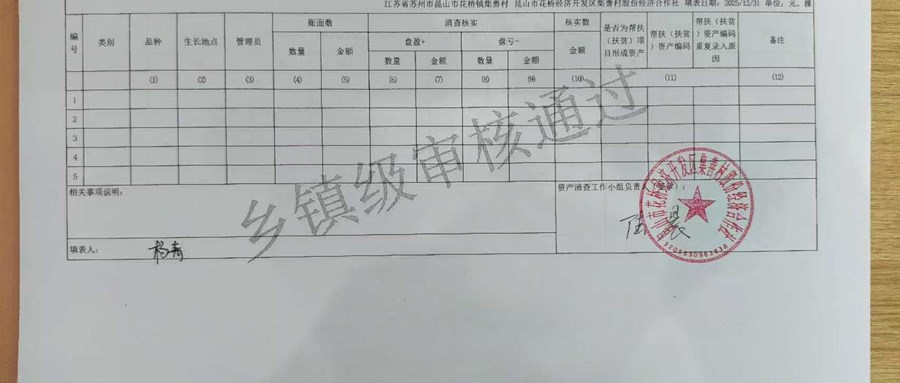 江苏省苏州市昆山市花桥镇集善村 昆山市花桥经济开发区集善村股份经济合作社 填表日期：2025/12/31 单位：元、棵
编号 类别 品种 生长地点 管理员 账面数 清查核实 核实数 是否为帮扶（扶贫）项目形成资产 帮扶（扶贫）资产编码 帮扶（扶贫）资产编码重复录入原因 备注
盘盈+ 盘亏-
数量 金额 数量 金额 数量 金额 金额
(1) (2) (3) (4) (5) (6) (7) (8) (9) (10) (11) (12)
1
2
3
4
5
乡镇级审核通过
相关事项说明：
资产清查工作小组负责人
填表人： 杨青
昆山市花桥经济开发区集善村股份经济合作社